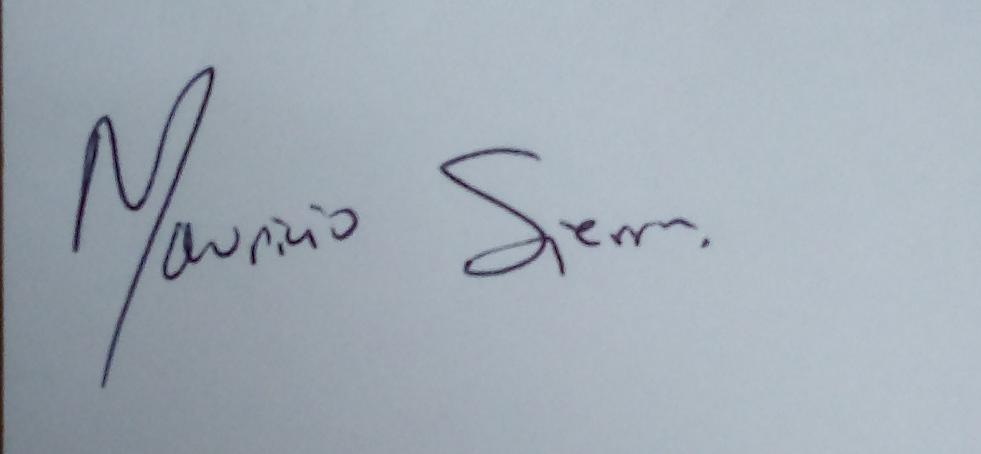 Mauricio Sierra.